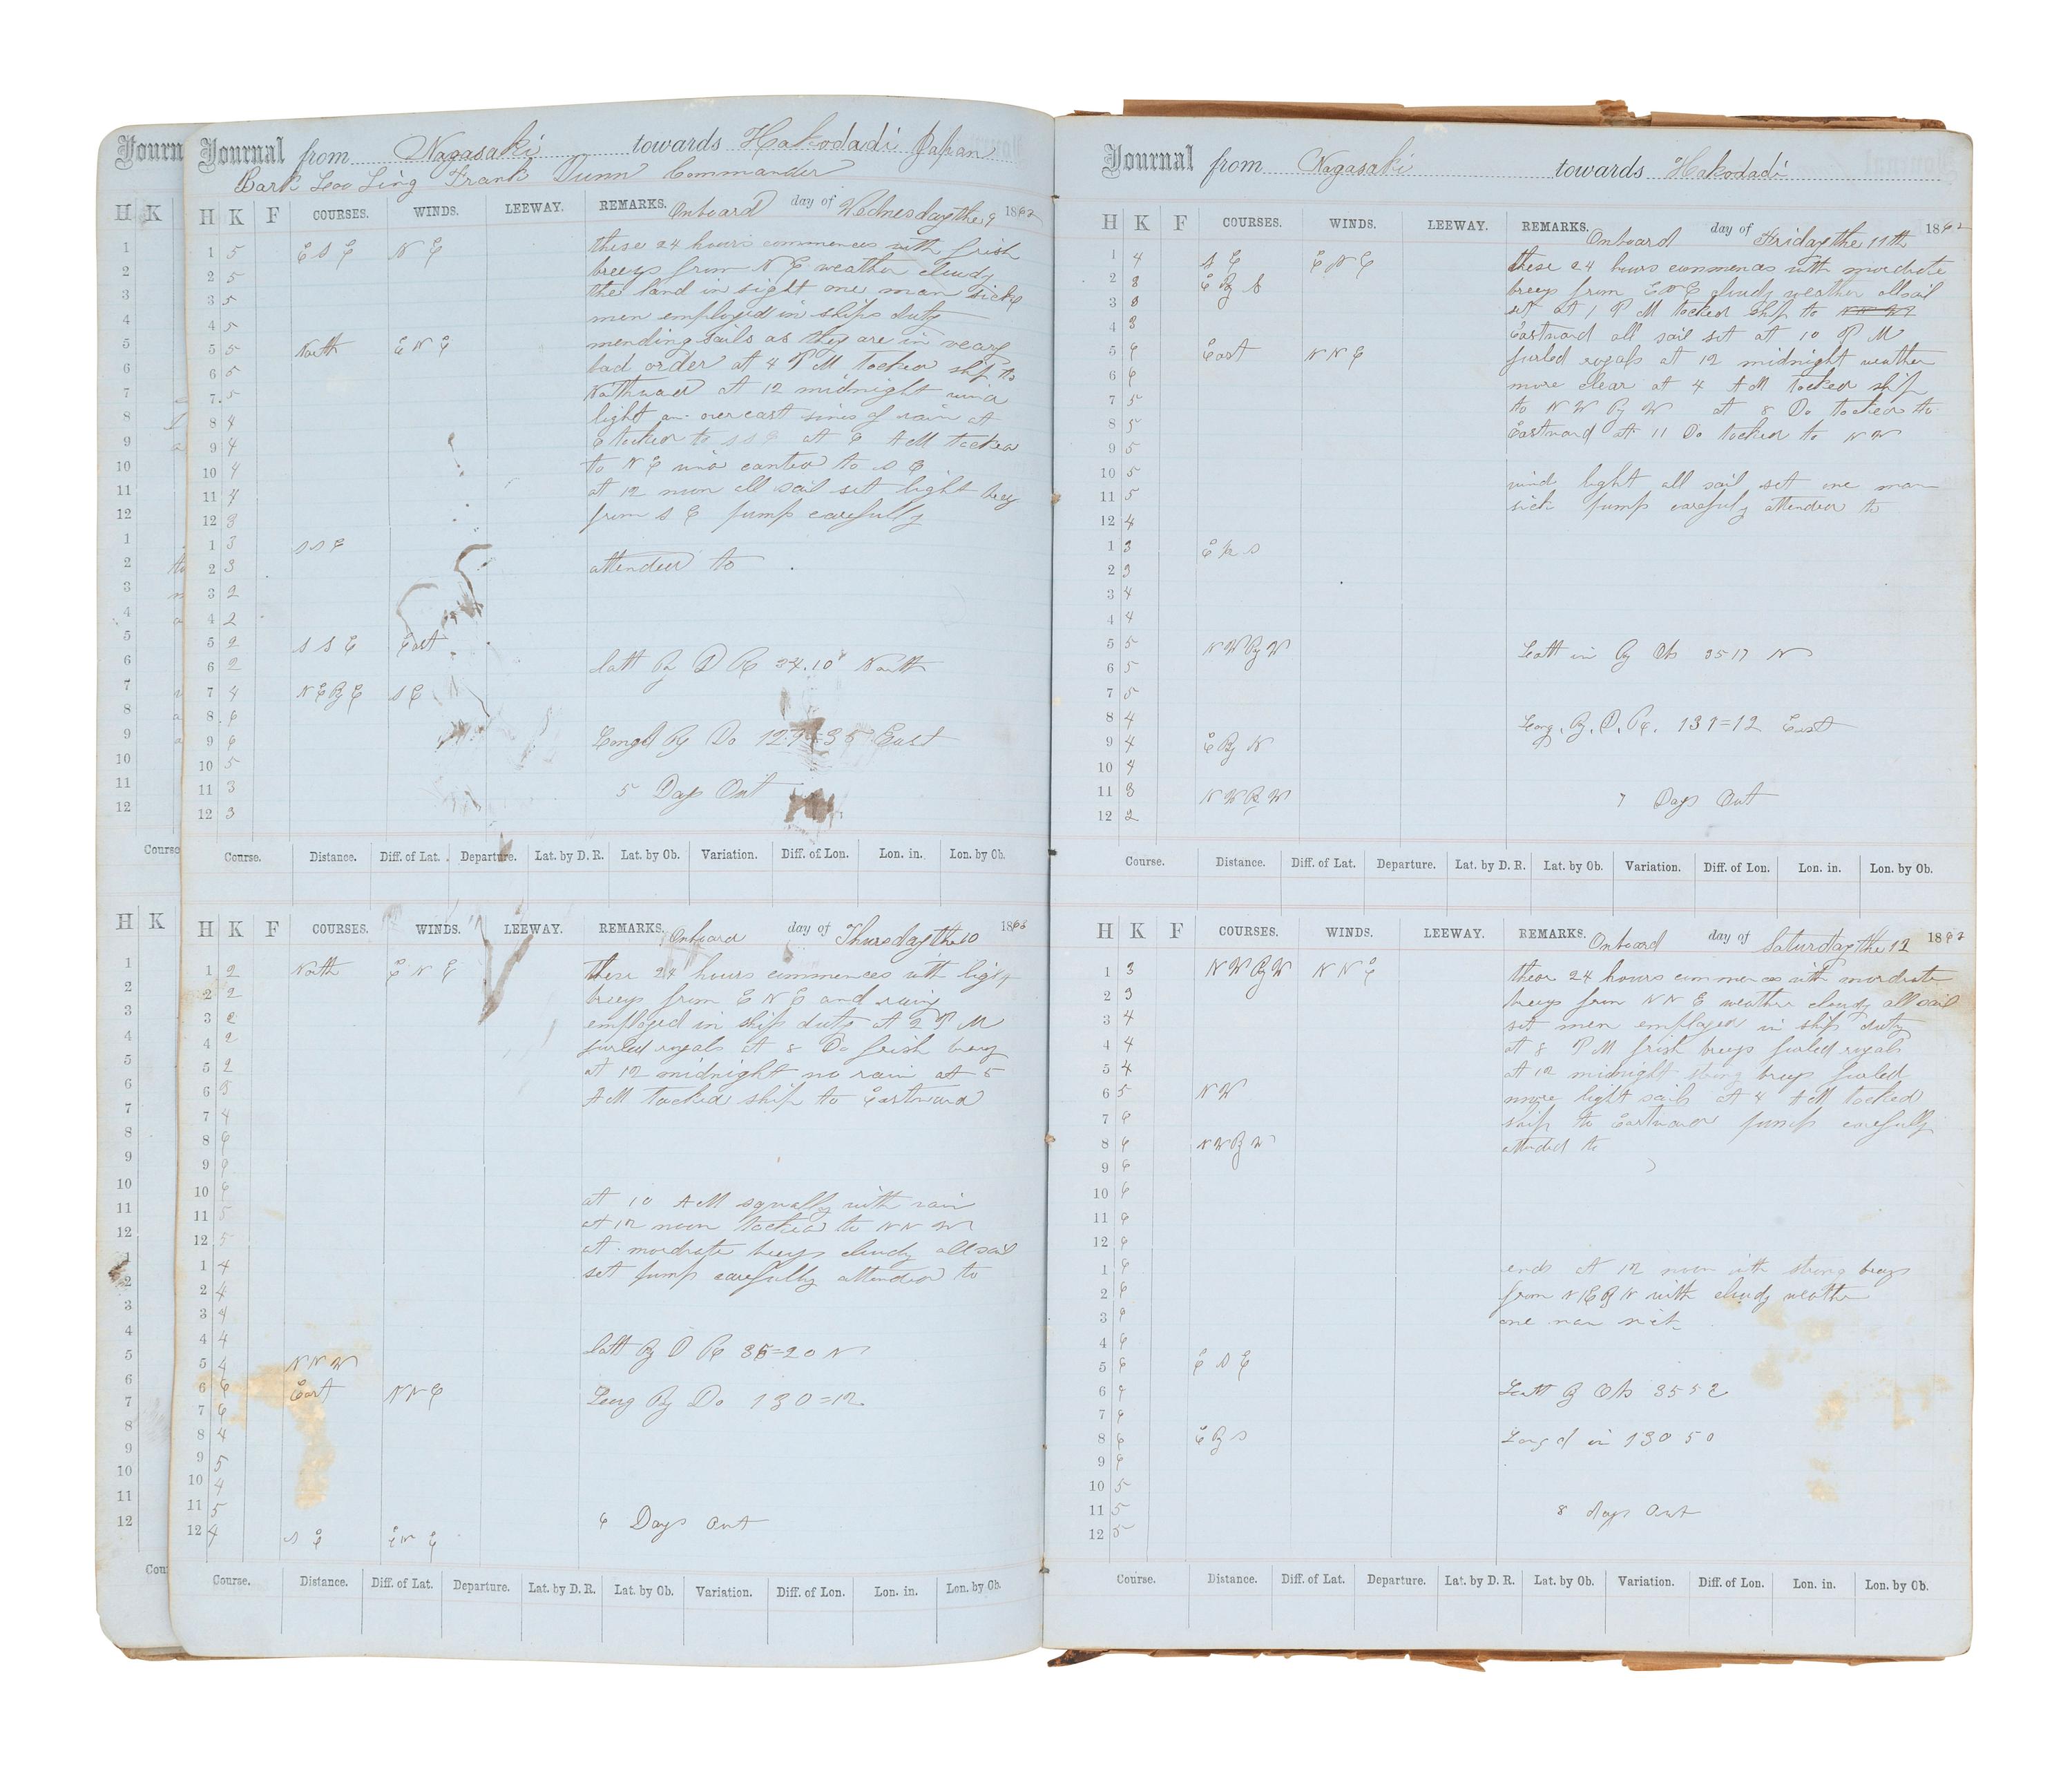 Journal from Nagasaki towards Hakodadi Japan
Bark Leou Ling Frank Dunn Commander
H K F COURSES. WINDS. LEEWAY. REMARKS. Onboard day of Wednesday the 9 1862
1 5 E S E N E these 24 hours commences with frish
2 5 breeys from N E weather cloudy
3 5 the land in sight one man sick
4 5 men employed in ships duty
5 5 North E N E mending sails as they are in veary
6 5 bad order at 4 P M tacked ship to
7 5 Northward at 12 midnight wind
8 4 light an overcast sines of rain at
9 4 tacked to S S E at 6 AM tacked
10 4 to N E wind canted to S E
11 4 at 12 noon all sail set light breey
12 3 from S E pump carefully
1 3 S S E
2 3 attended to
3 2
4 2
5 2 S S E East
6 2 latt By D R 34.10 North
7 4 N E By E S E
8 6
9 6 Longd By Do 129=35 East
10 5
11 3 5 Days Out
12 3
Course. Distance. Diff. of Lat. Departure. Lat. by D. R. Lat. by Ob. Variation. Diff. of Lon. Lon. in. Lon. by Ob.
H K F COURSES. WINDS. LEEWAY. REMARKS. Onboard day of Thursday the 10 186
1 2 North E N E these 24 hours commences with light
2 2 breeys from E N E and rainy
3 2 employed in ship duty at 2 P M
4 2 furled royals at 8 Do frish breey
5 2 at 12 midnight no rain at 5
6 3 AM tacked ship to Eastward
7 4
8 6
9 6
10 6 at 10 AM squally with rain
11 5 at 12 noon tacked to N N W
12 5 at mordrate breeys cloudy all sail
1 4 set pump carefully attended to
2 4
3 4
4 4 latt By D R 35=20 N
5 4 N N W
6 6 East N N E Long By Do 130=12
7 6
8 4
9 5
10 4
11 5 6 Days Out
12 4 S E E N E
Course. Distance. Diff. of Lat. Departure. Lat. by D. R. Lat. by Ob. Variation. Diff. of Lon. Lon. in. Lon. by Ob.
Journal from Nagasaki towards Hakodadi
H K F COURSES. WINDS. LEEWAY. REMARKS. Onboard day of Friday the 11th 1862
1 4 S E E N E these 24 hours commences with mordrate
2 3 E By S breeys from E N E cloudy weather all sail
3 3 set at 1 P M tacked ship to
4 3 Eastward all sail set at 10 P M
5 6 East N N E furled royals at 12 midnight weather
6 6 more clear at 4 AM tacked ship
7 5 to N W By W at 8 Do tacked to
8 5 Eastward at 11 Do tacked to N W
9 5
10 5 wind light all sail set one man
11 5 sick pump carefuly attended to
12 4
1 3 E By S
2 3
3 4
4 4
5 5 N W By W Latt in By Ob 35 17 N
6 5
7 5
8 4 Long. By. D. R. 131=12 East
9 4 E By N
10 4
11 3 N W By W 7 Days Out
12 2
Course. Distance. Diff. of Lat. Departure. Lat. by D. R. Lat. by Ob. Variation. Diff. of Lon. Lon. in. Lon. by Ob.
H K F COURSES. WINDS. LEEWAY. REMARKS. Onboard day of Saturday the 12 1862
1 3 N W By W N N E these 24 hours commences with mordrate
2 3 breeys from N N E weather cloudy all sail
3 4 set men employed in ship duty
4 4 at 8 P M frish breeys furled royals
5 4 at 12 midnight strong breeys furled
6 5 N W more light sails at 4 AM tacked
7 6 ship to Eastward pump carefully
8 6 N W By W attended to
9 6
10 6
11 6
12 6
1 6 ends at 12 noon with strong breeys
2 6 from N E By N with cloudy weather
3 6 one man sick
4 6
5 6 E S E
6 6 Latt By Obs 35 52
7 6
8 6 E By S Longd in 130 50
9 6
10 5
11 5 8 days Out
12 5
Course. Distance. Diff. of Lat. Departure. Lat. by D. R. Lat. by Ob. Variation. Diff. of Lon. Lon. in. Lon. by Ob.